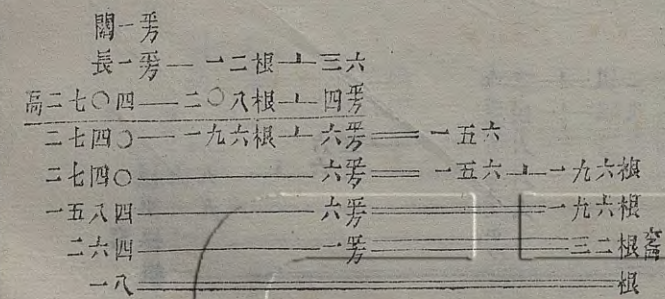 闊一平方
長一平方—一二根⊥三六
高二七〇四—二〇八根⊥四平方
二七四〇—一九六根⊥六平方=一五六
二七四〇—六平方=一五六⊥一九六根
一五八四—六平方=一九六根
二六四—一平方=三二根
一八=根